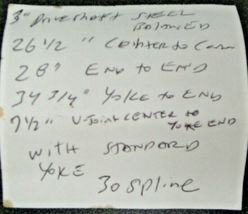 3" Driveshaft STEEL
BALANCED
26 1/2 " CENTER to Cen
28" END to END
34 3/4" YOKE to END
7 1/2" U-JOINT CENTER to
YOKE END
WITH STANDARD
YOKE
30 spline